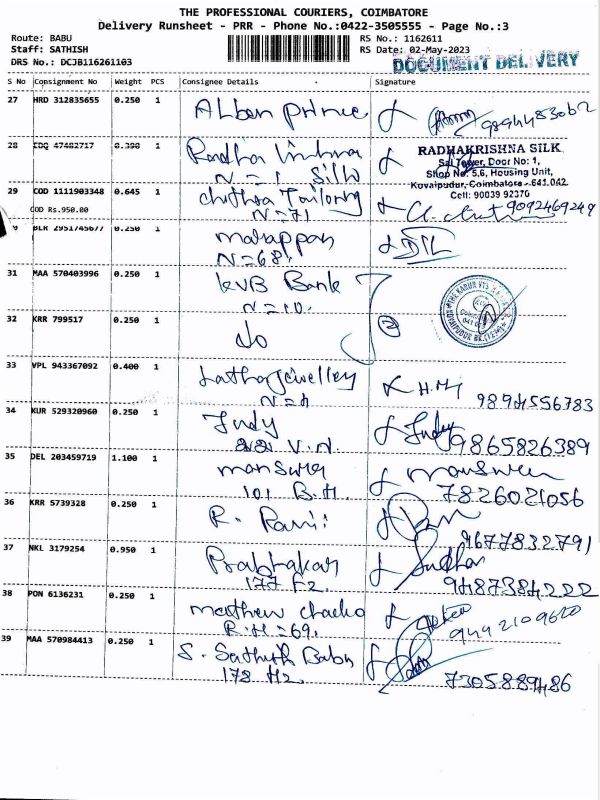 THE PROFESSIONAL COURIERS, COIMBATORE
Delivery Runsheet - PRR - Phone No.:0422-3505555 - Page No.:3
Route: BABU
RS No.: 1162611
Staff: SATHISH
RS Date: 02-May-2023
DRS No.: DCJB116261103
DOCUMENT DELIVERY
S No Consignment No Weight PCS Consignee Details Signature
27 HRD 312835655 0.250 1 Alban prince
9894483062
28 IDQ 47482717 0.390 1 Radha
N = 1 Silk
RADHAKRISHNA SILK
Sai Tower, Door No: 1,
Shop No: 5,6, Housing Unit,
Kovaipudur, Coimbatore - 641 042
Cell: 90039 92370
29 COD 1111903348 0.645 1 chithra Tailoring
COD Rs.950.00 N = 71
9092469249
BLR 2951745677 0.250 1 marappan
N = 68
31 MAA 570403996 0.250 1 KVB Bank
N = 10.
32 KRR 799517 0.250 1 do
2
33 VPL 943367092 0.400 1 Latha Jewellery
N = 4
9894556783
34 KUR 529320960 0.250 1 Judy Judy
V.N. 9865826389
35 DEL 203459719 1.100 1
101 B.H. 7826021056
36 KRR 5739328 0.250 1 R.
9677832791
37 NKL 3179254 0.950 1 Prabhakar Sudhar
177 F2. 9487384222
38 PON 6136231 0.250 1 mathew chacko
R.H = 69. 9442109620
39 MAA 570984413 0.250 1 S. Sathish Babu
178 H2. 7305889486